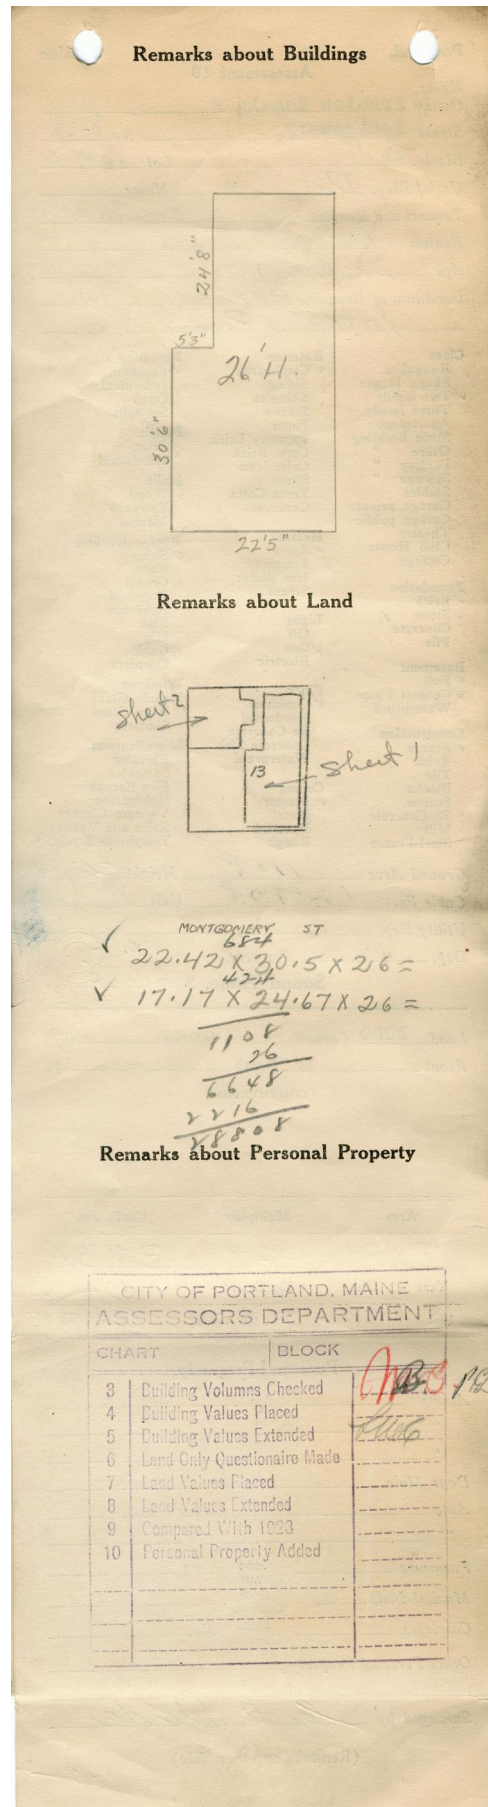 Remarks about Buildings
24'8"
5'3"
26'H.
30'6"
22'5"
Remarks about Land
sheet 2
13
sheet 1
MONTGOMERY ST
684
22.42 X 30.5 X 26 =
424
17.17 X 24.67 X 26 =
1108
26
6648
2216
28808
Remarks about Personal Property
CITY OF PORTLAND, MAINE
ASSESSORS DEPARTMENT
CHART BLOCK
3 Building Volumns Checked
4 Building Values Placed
5 Building Values Extended
6 Land Only Questionaire Made
7 Land Values Placed
8 Land Values Extended
9 Compared With 1923
10 Personal Property Added